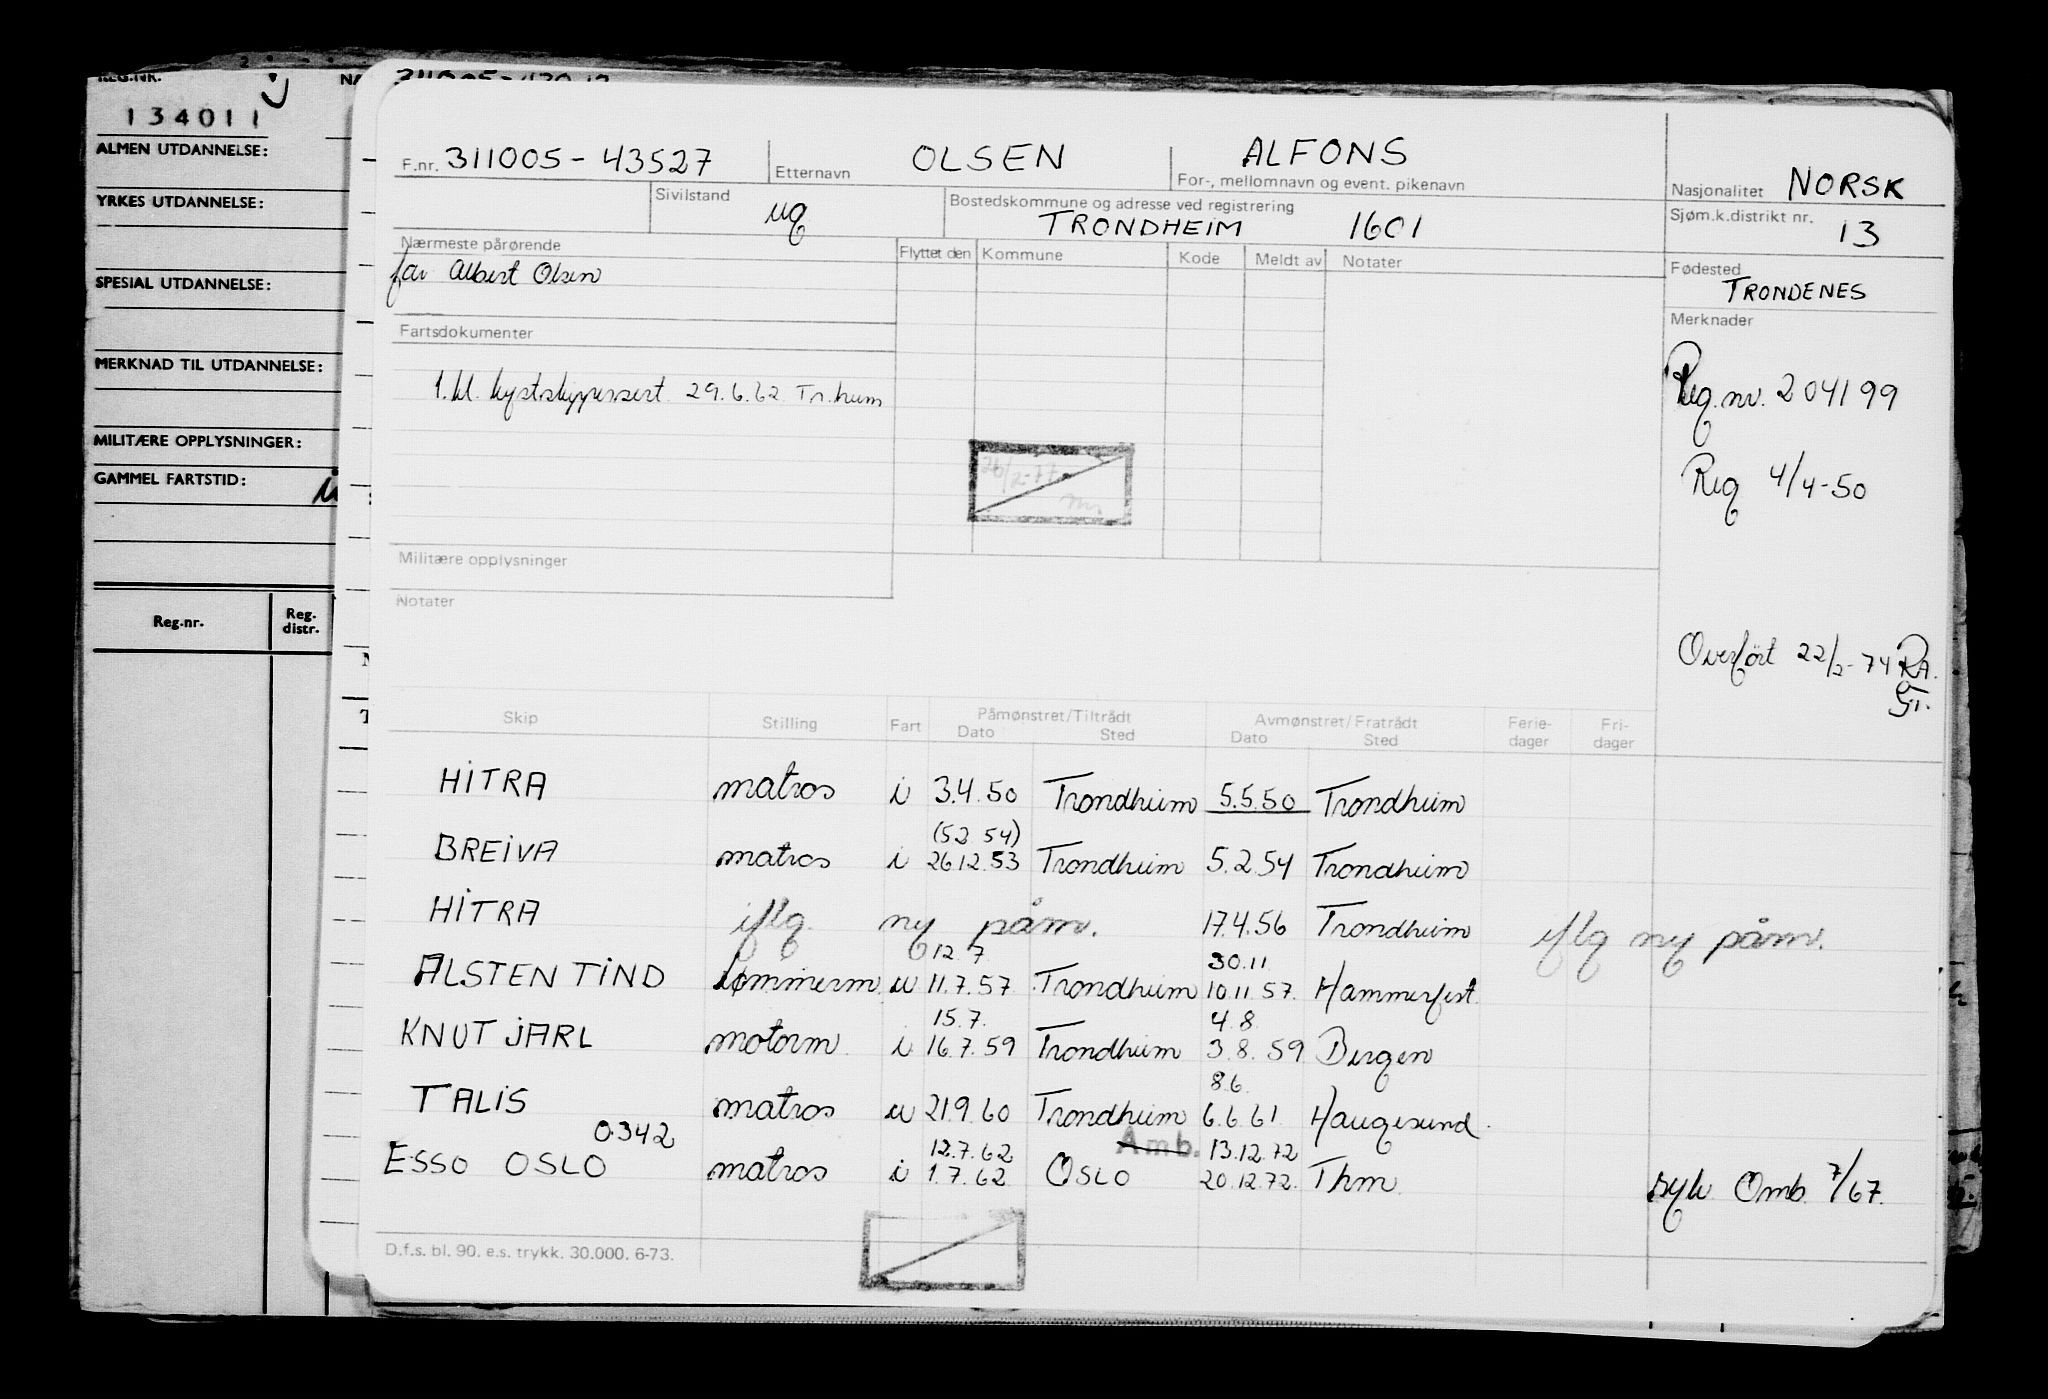 REG.NR.
134011
ALMEN UTDANNELSE:
YRKES UTDANNELSE:
SPESIAL UTDANNELSE:
MERKNAD TIL UTDANNELSE:
MILITÆRE OPPLYSNINGER:
GAMMEL FARTSTID:
Reg.nr. Reg. distr.
F.nr. 311005-43527 Etternavn OLSEN ALFONS
For-, mellomnavn og event. pikenavn
Nasjonalitet NORSK
Sivilstand ug
Bostedskommune og adresse ved registrering
TRONDHEIM 1601
Sjøm.k.distrikt nr. 13
Nærmeste pårørende
far Albert Olsen
Flyttet den Kommune Kode Meldt av Notater
Fødested
TRONDENES
Fartsdokumenter
1. kl. kystskippersert 29.6.62 Tr.heim
Merknader
Reg. nr. 204199
Reg 4/4-50
26/2-77
Militære opplysninger
Notater
Overført 22/2-74 RA.
Skip Stilling Fart Påmønstret/Tiltrådt Avmønstret/Fratrådt Ferie-dager Fri-dager
Dato Sted Dato Sted
HITRA matros i 3.4.50 Trondheim 5.5.50 Trondheim
(5.2 54)
BREIVA matros i 26.12.53 Trondheim 5.2.54 Trondheim
HITRA iflg. ny påm. 17.4.56 Trondheim iflg ny påm.
12.7 30.11
ALSTEN TIND tømmerm. u 11.7.57 Trondheim 10.11.57. Hammerfest
15.7. 4.8.
KNUT JARL motorm. i 16.7.59 Trondheim 3.8.59 Bergen
8.6.
TALIS matros u 21.9.60 Trondheim 6.6.61 Haugesund.
0342 12.7.62 Amb. 13.12.72
ESSO OSLO matros i 1.7.62 OSLO 20.12.72. Thm syk Omb. 7/67.
D.f.s. bl. 90. e.s. trykk. 30.000. 6-73.